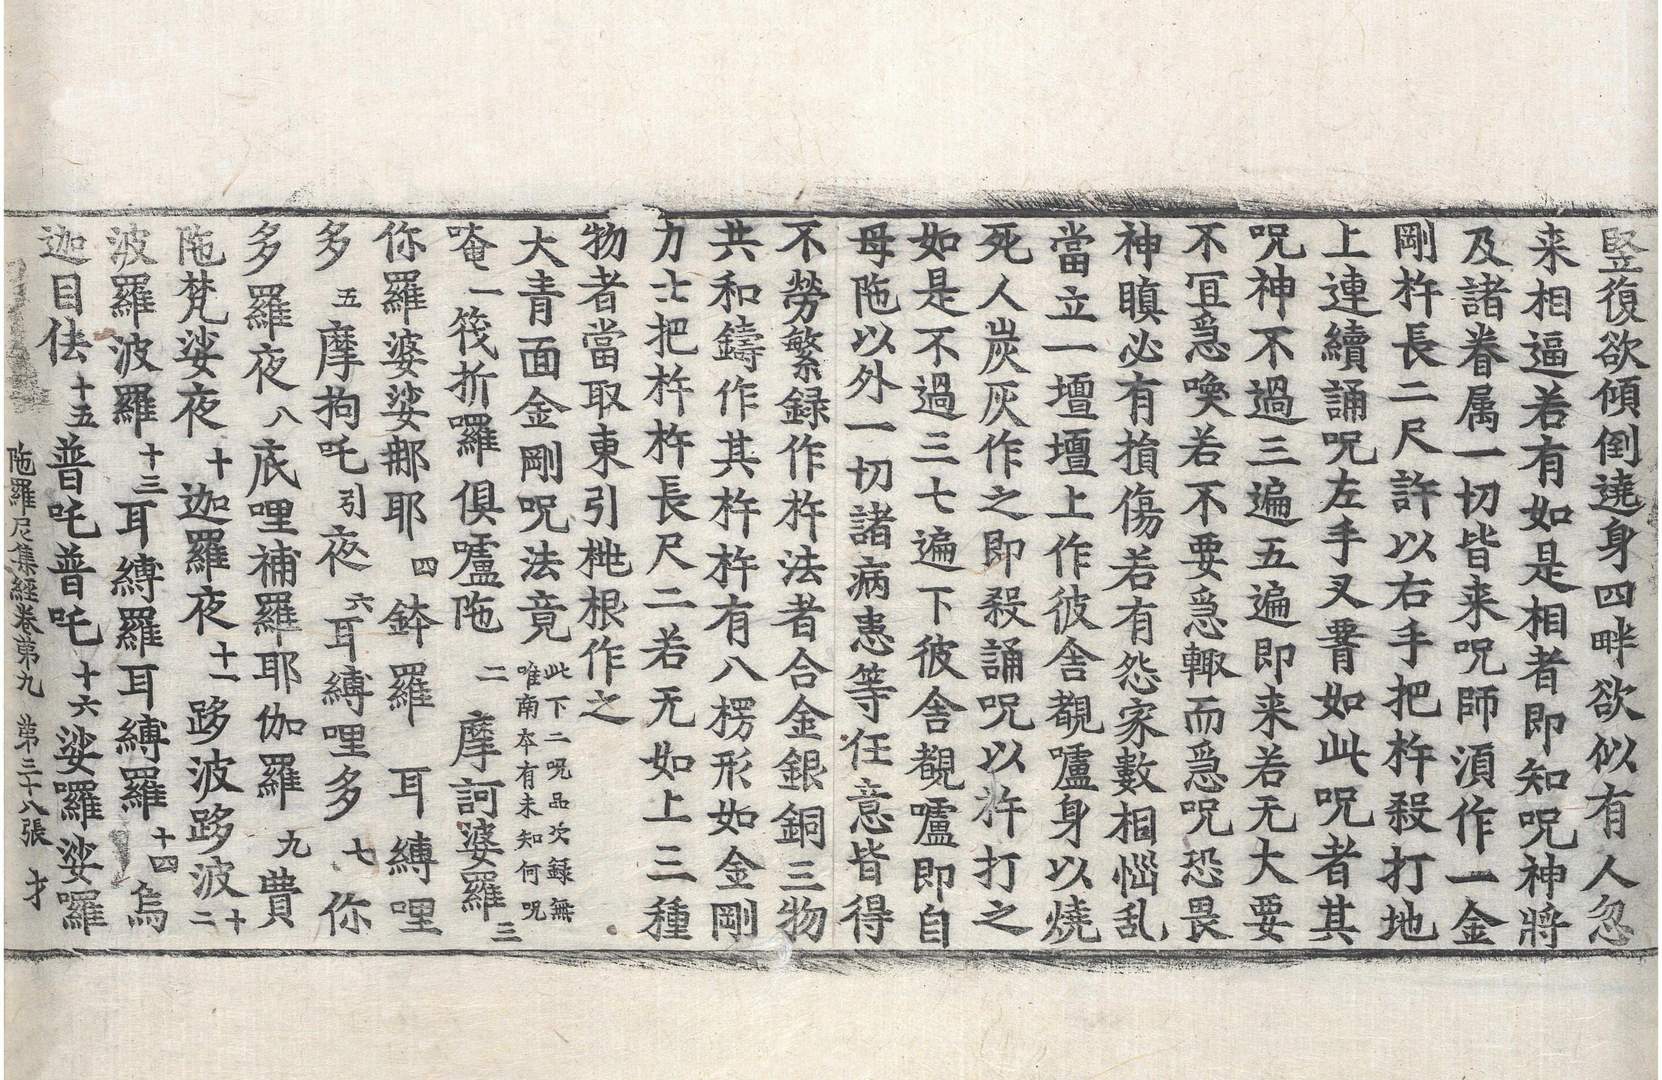 竪復欲傾倒遶身四畔欲似有人忽
来相逼若有如是相者即知呪神將
及諸眷属一切皆来呪師湏作一金
剛杵長二尺許以右手把杵殺打地
上連續誦呪左手叉䏿如此呪者其
呪神不過三遍五遍即来若无大要
不冝急喚若不要急輙而急呪恐畏
神瞋必有損傷若有怨家數相惱乱
當立一壇壇上作彼舍覩嚧身以燒
死人炭灰作之即殺誦呪以杵打之
如是不過三七遍下彼舍覩嚧即自
母陁以外一切諸病恚等任意皆得
不勞繁録作杵法者合金銀銅三物
共和鑄作其杵杵有八楞形如金剛
力士把杵杵長尺二若无如上三種
物者當取東引桃根作之
大青面金剛呪法竟 此下二呪品次録無 唯南夲有未知何呪
唵一筏折囉俱嚧陁二 摩訶婆羅三
你羅婆娑那耶四鉢羅 耳縛哩
多五摩拘吒引夜六耳縛哩多七你
多羅夜八底哩補羅耶伽羅九費
陁梵娑夜十迦羅夜十一跢波跢波十二
波羅波羅十三耳縛羅耳縛羅十四烏
迦目佉十五普吒普吒十六娑囉娑囉
陁羅尼集經卷第九 第三十八張 才